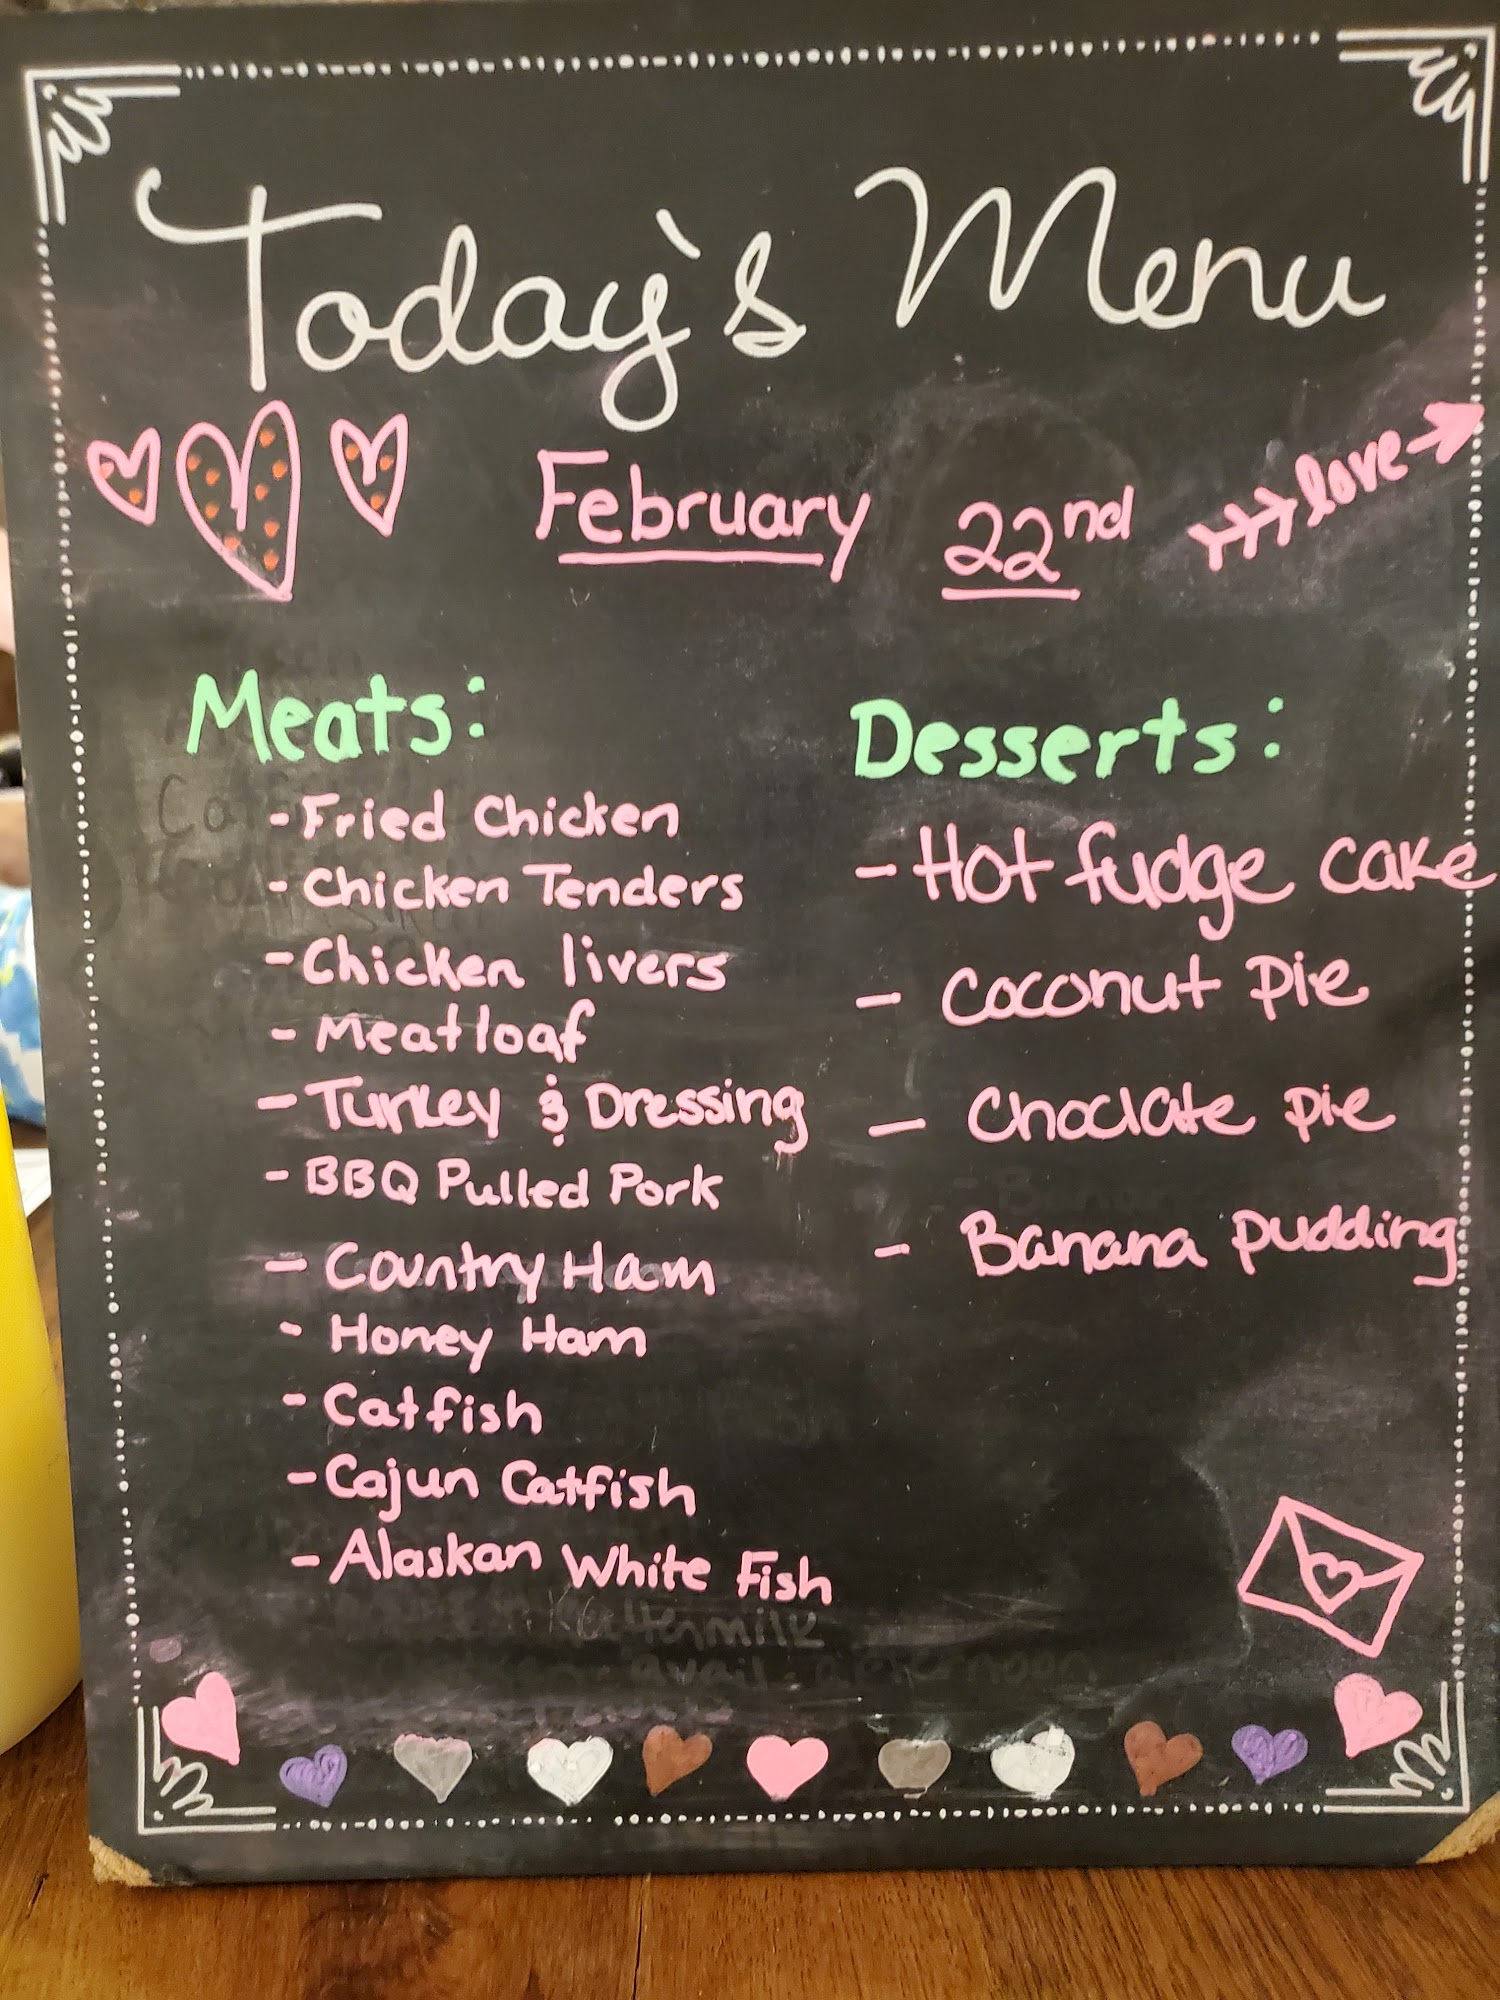 Today's Menu
February 22nd
love
Meats:
- Fried Chicken
- Chicken Tenders
- Chicken livers
- Meatloaf
- Turkey & Dressing
- BBQ Pulled Pork
- Country Ham
- Honey Ham
- Catfish
- Cajun Catfish
- Alaskan White Fish
Buttermilk
Chicken avail. afternoon
Desserts:
- Hot fudge cake
- Coconut pie
- Choclate pie
- Banana pudding